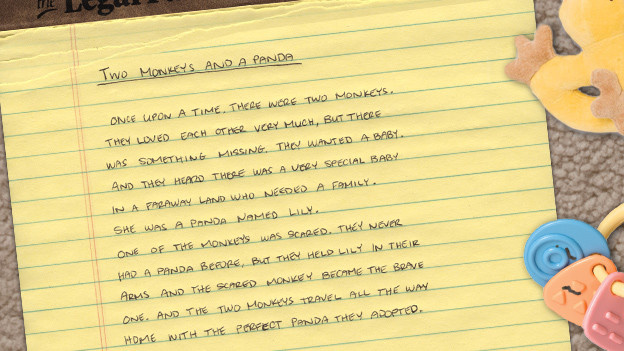 THE Legal
TWO MONKEYS AND A PANDA
ONCE UPON A TIME. THERE WERE TWO MONKEYS.
THEY LOVED EACH OTHER VERY MUCH, BUT THERE
WAS SOMETHING MISSING. THEY WANTED A BABY.
AND THEY HEARD THERE WAS A VERY SPECIAL BABY
IN A FARAWAY LAND WHO NEEDED A FAMILY.
SHE WAS A PANDA NAMED LILY.
ONE OF THE MONKEYS WAS SCARED. THEY NEVER
HAD A PANDA BEFORE, BUT THEY HELD LILY IN THEIR
ARMS AND THE SCARED MONKEY BECAME THE BRAVE
ONE. AND THE TWO MONKEYS TRAVEL ALL THE WAY
HOME WITH THE PERFECT PANDA THEY ADOPTED.